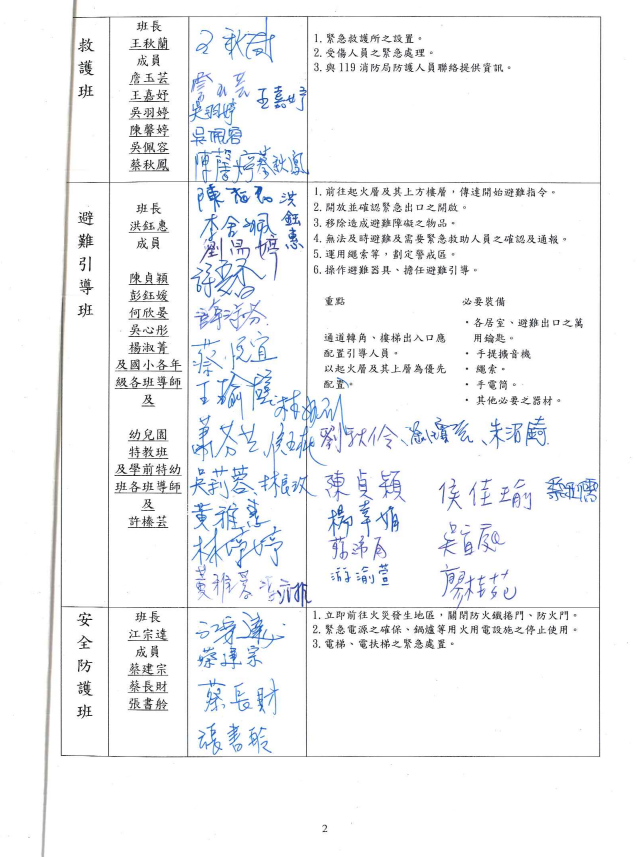 救護班
班長
王秋蘭
成員
詹玉芸
王嘉妤
吳羽婷
陳馨婷
吳佩容
蔡秋鳳
王嘉妤
吳羽婷
吳佩容
陳馨婷 蔡秋鳳
1.緊急救護所之設置。
2.受傷人員之緊急處理。
3.與119消防局防護人員聯絡提供資訊。
避難引導班
班長
洪鈺惠
成員
陳貞穎
彭鈺媛
何欣晏
吳心彤
楊淑菁
及國小各年
級各班導師
及
幼兒園
特教班
及學前特幼
班各班導師
及
許榛芸
洪鈺惠
蔡悅宜
吳莉蓉、林良玫
陳貞穎
侯佳瑜
黃雅惠
林婷婷
游渝萱
1.前往起火層及其上方樓層,傳達開始避難指令。
2.開放並確認緊急出口之開啟。
3.移除造成避難障礙之物品。
4.無法及時避難及需要緊急救助人員之確認及通報。
5.運用繩索等,劃定警戒區。
6.操作避難器具、擔任避難引導。
重點
通道轉角、樓梯出入口應
配置引導人員。
以起火層及其上層為優先
配置。
必要裝備
・各居室、避難出口之萬
用鑰匙。
・手提擴音機
・繩索。
・手電筒。
・其他必要之器材。
安全防護班
班長
江宗達
成員
蔡建宗
蔡長財
張書舲
蔡建宗
蔡長財
張書舲
1.立即前往火災發生地區,關閉防火鐵捲門、防火門。
2.緊急電源之確保、鍋爐等用火用電設施之停止使用。
3.電梯、電扶梯之緊急處置。
2